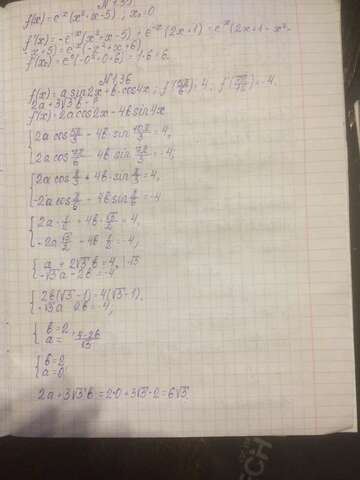 N 1,35
f(x)=e^{-x}(x²+x-5), x₀=0
f'(x)=-e^{-x}(x²+x-5)+e^{-x}(2x+1)=e^{-x}(2x+1-x²-
-x+5)=e^{-x}(-x²+x+6)
f'(x₀)=e⁰(-0²+0+6)=1·6=6.
N 1,36
f(x)=a sin2x+b·cos4x, f'(5π/6)=4, f'(7π/12)=-4.
2a+3√3b=?
f'(x)=2a cos2x-4b sin4x
{2a cos 5π/3 - 4b sin 10π/3=4,
2a cos 7π/6 - 4b sin 7π/3=-4,
{2a cos π/3 + 4b·sin π/3=4,
-2a cos π/6 - 4b sin π/3=-4
{2a·1/2+4b·√3/2=4,
-2a √3/2 - 4b 1/2=-4,
{a+2√3b=4, |·√3
-√3a-2b=-4
{2b(√3-1)=4(√3-1),
-√3a 2b=-4,
{b=2
a=4-2b/√3
{b=2
a=0.
2a+3√3b=2·0+3√3·2=6√3.